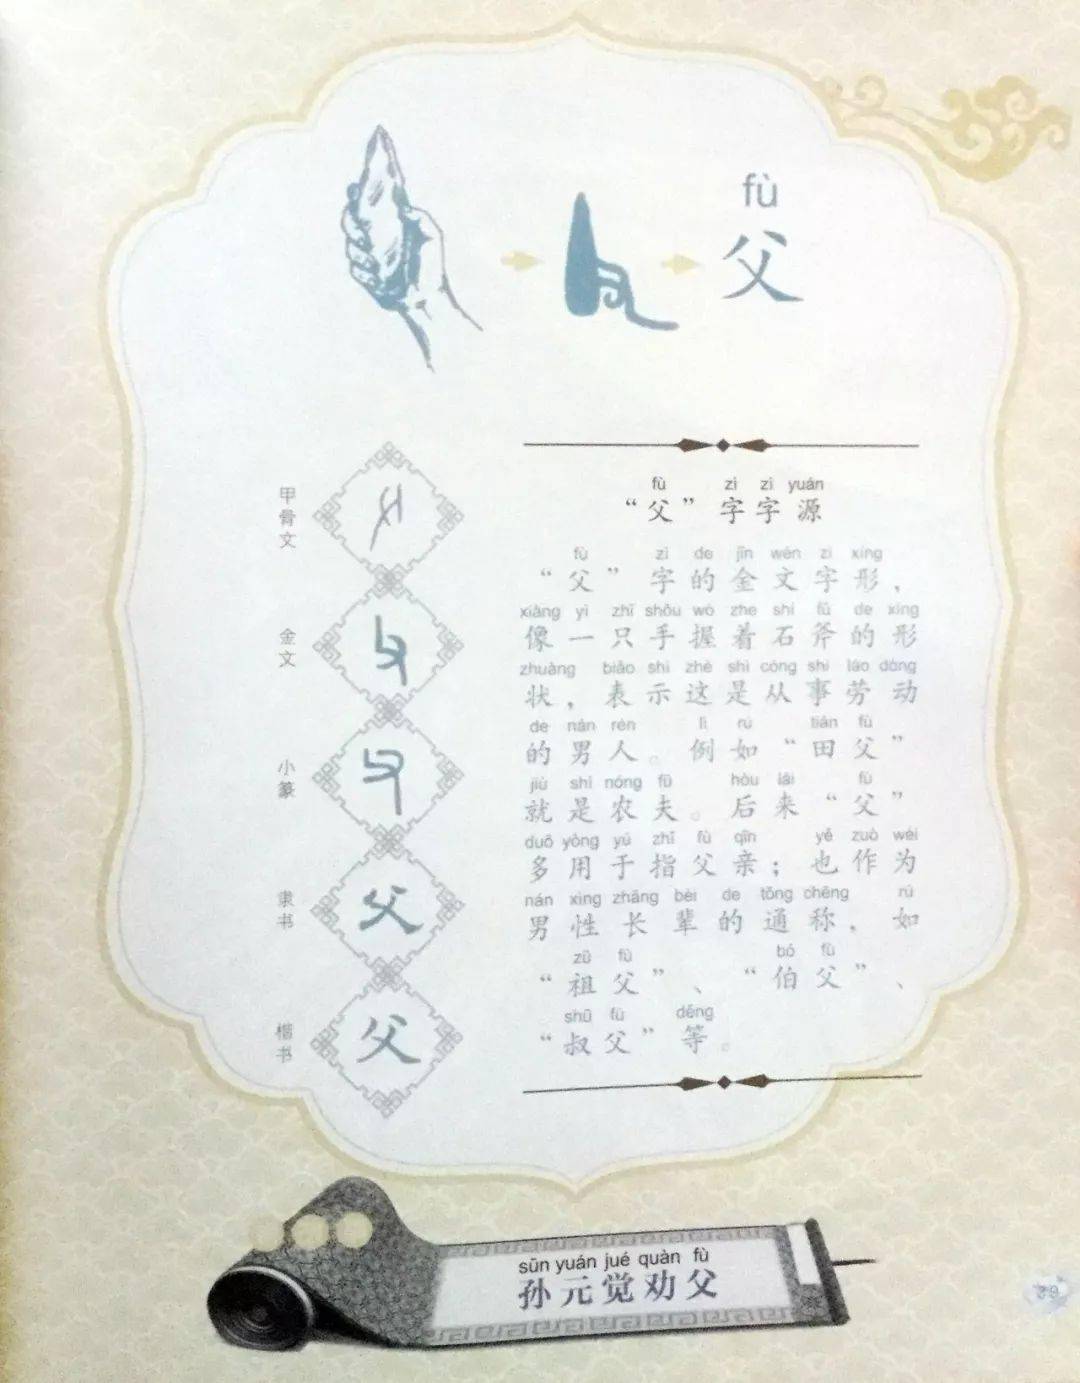 fù
父
甲骨文
金文
小篆
隶书
楷书
fù zì zì yuán
“父”字字源
fù zì de jīn wén zì xíng
“父”字的金文字形，
xiàng yì zhī shǒu wò zhe shí fǔ de xíng
像一只手握着石斧的形
zhuàng biǎo shì zhè shì cóng shì láo dòng
状，表示这是从事劳动
de nán rén lì rú tián fù
的男人。例如“田父”
jiù shì nóng fū hòu lái fù
就是农夫。后来“父”
duō yòng yú zhǐ fù qīn yě zuò wéi
多用于指父亲；也作为
nán xìng zhǎng bèi de tōng chēng rú
男性长辈的通称，如
zǔ fù bó fù
“祖父”、“伯父”、
shū fù děng
“叔父”等。
sūn yuán jué quàn fù
孙元觉劝父